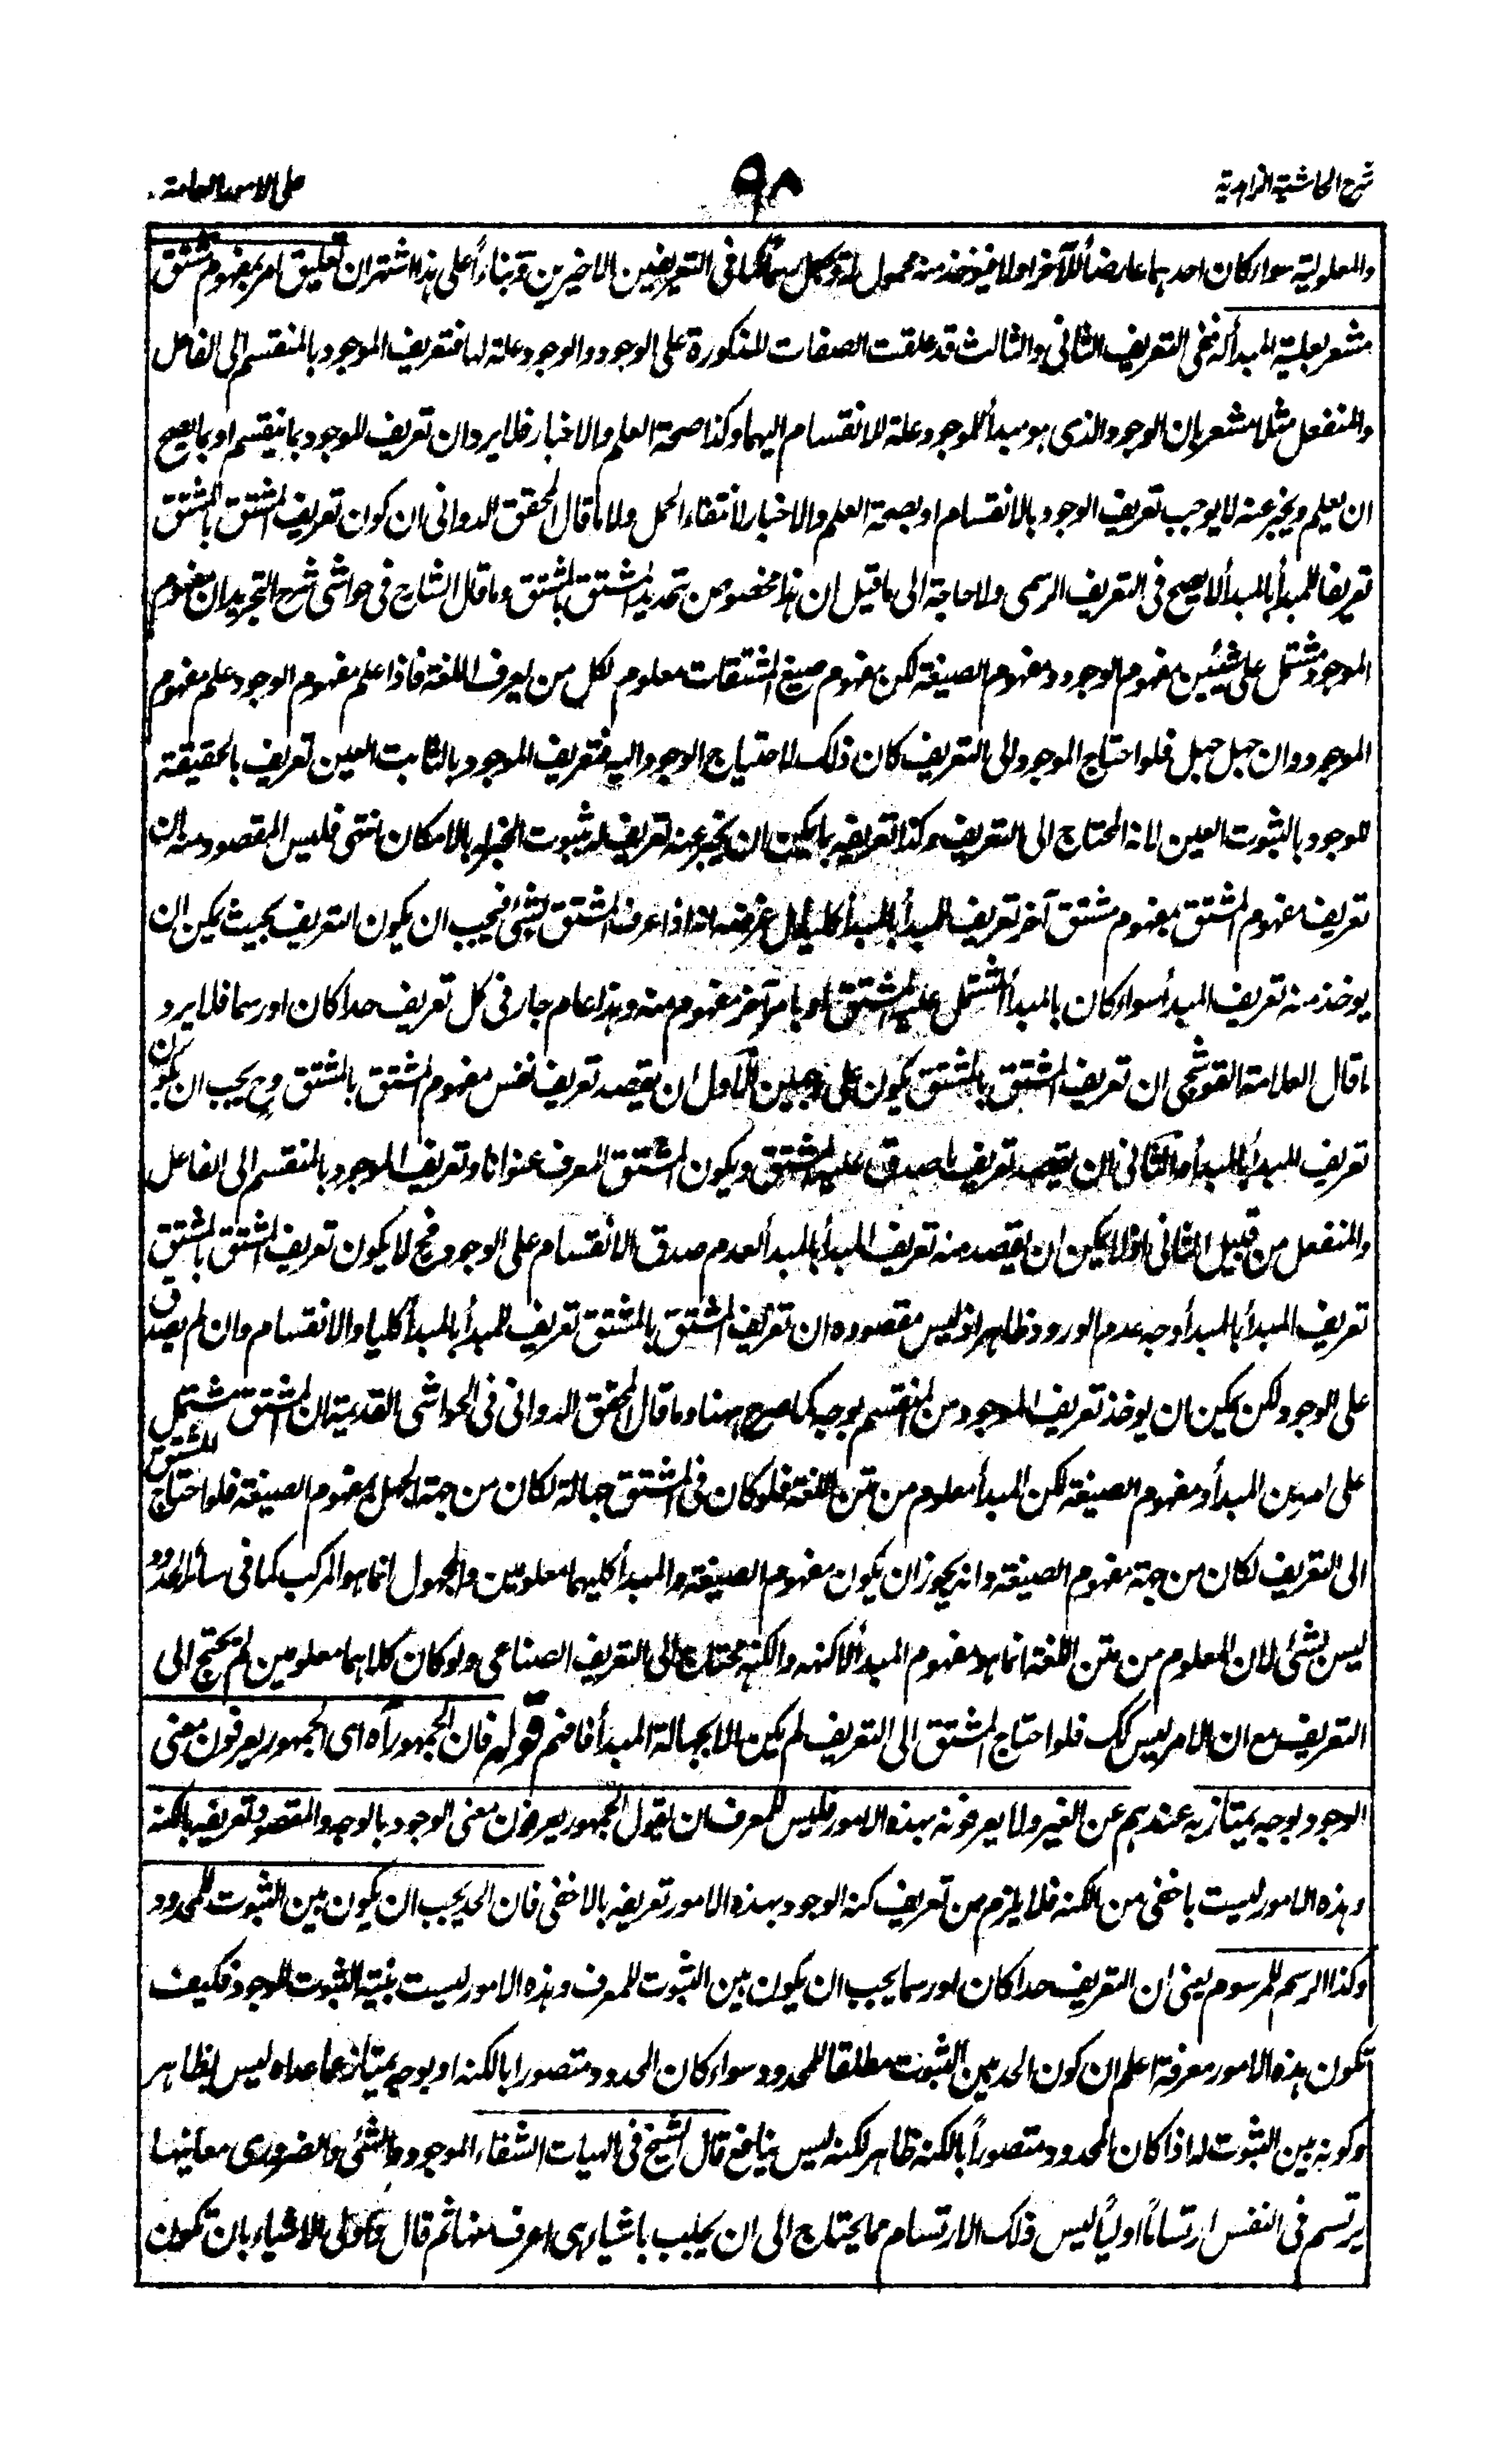 شرح الحاشية الزاهدية
٩٨
على الامور العامة
والمعلولية سواء كان احدهما عارضاً للآخر او لا فيؤخذ منه محمول كما فى التعريفين الاخيرين وبناءاً على هذا اشتهر ان تعليق امر بمفهوم مشتق
مشعر بعلية المبدأ له ففى التعريف الثانى والثالث قد علقت الصفات المذكورة على الوجود والوجود علة لها فتعريف الموجود بالمنقسم الى الفاعل
والمنفعل مثلا مشعر بان الوجود الذى هو مبدأ الموجود علة للانقسام اليهما وكذا صحة العلم والاخبار فلا يرد ان تعريف الموجود بما ينقسم او بما يصح
ان يعلم ويخبر عنه لا يوجب تعريف الوجود بالانقسام او بصحة العلم والاخبار لانتفاء الحمل ولا ما قال المحقق الدوانى ان كون تعريف المشتق بالمشتق
تعريفا للمبدأ بالمبدأ لا يصح فى التعريف الرسمى ولا حاجة الى ما قيل ان هذا مخصوص بتحديد المشتق بالمشتق وما قال الشارح فى حواشى شرح التجريد ان مفهوم
الموجود مشتمل على شيئين مفهوم الوجود ومفهوم الصيغة لكن مفهوم صيغ المشتقات معلوم لكل من يعرف اللغة فاذا علم مفهوم الوجود علم مفهوم
الموجود وان جهل جهل فلو احتاج الموجود الى التعريف كان ذلك لاحتياج الوجود اليه فتعريف الموجود بالثابت العين تعريف بالحقيقة
للوجود بالثبوت العين لانه المحتاج الى التعريف وكذا تعريفه بما يمكن ان يخبر عنه تعريف له بثبوت الخبر له بالامكان انتهى فليس المقصود منه ان
تعريف مفهوم المشتق بمفهوم مشتق آخر تعريف المبدأ بالمبدأ كليا بل غرضه انه اذا عرف المشتق بشئ فيجب ان يكون التعريف بحيث يمكن ان
يوخذ منه تعريف المبدأ سواء كان بالمبدأ المشتمل عليه المشتق او بامر آخر مفهوم منه وهذا عام جار فى كل تعريف حدا كان او رسما فلا يرد
ما قال العلامة القوشجى ان تعريف المشتق بالمشتق يكون على وجهين الاول ان يقصد تعريف نفس مفهوم المشتق بالمشتق وح يجب ان يكون
تعريف المبدأ بالمبدأ والثانى ان يقصد تعريف ما صدق عليه المشتق ويكون المشتق المعرف عنوانا وتعريف الموجود بالمنقسم الى الفاعل
والمنفعل من قبيل الثانى اذ لا يمكن ان يقصد منه تعريف المبدأ بالمبدأ لعدم صدق الانقسام على الوجود فح لا يكون تعريف المشتق بالمشتق
تعريف المبدأ بالمبدأ وجه عدم الورود ظاهر اذ ليس مقصوده ان تعريف المشتق بالمشتق تعريف للمبدأ بالمبدأ كليا والانقسام وان لم يصدق
على الوجود لكن يمكن ان يوخذ تعريف الموجود من المنقسم بوجه كما صرح ههنا وما قال المحقق الدوانى فى الحواشى القديمة ان المشتق مشتمل
على امرين المبدأ ومفهوم الصيغة لكن المبدأ معلوم من متن اللغة فلو كان فى المشتق جهالة لكان من جهة الجهل بمفهوم الصيغة فلو احتاج المشتق
الى التعريف لكان من جهة مفهوم الصيغة وانه يجوز ان يكون مفهوم الصيغة والمبدأ كليهما معلومين والمجهول انما هو المركب كما فى سائر الحدود
ليس بشئ لان المعلوم من متن اللغة انما هو مفهوم المبدأ لا كنهه والكنه محتاج الى التعريف الصناعى ولو كان كلاهما معلومين لم يحتج الى
التعريف مع ان الامر ليس كك فلو احتاج المشتق الى التعريف لم يكن الا بجهالة المبدأ فافهم قوله فان الجمهور آه اى الجمهور يعرفون معنى
الوجود بوجه يمتاز به عندهم عن الغير ولا يعرفونه بهذه الامور فليس للمعرف ان يقول الجمهور يعرفون معنى الوجود بالوجه والمقصود تعريفه بالكنه
وهذه الامور ليست باخفى من الكنه فلا يلزم من تعريف كنه الوجود بهذه الامور تعريفه بالاخفى فان الحد يجب ان يكون بين الثبوت للمحدود
وكذا الرسم للمرسوم يعنى ان التعريف حدا كان او رسما يجب ان يكون بين الثبوت للمعرف وهذه الامور ليست بينة الثبوت للوجود فكيف
تكون هذه الامور معرفة اعلم ان كون الحد بين الثبوت مطلقا للمحدود سواء كان المحدود متصورا بالكنه او بوجه يمتاز عما عداه ليس بظاهر
وكونه بين الثبوت له اذا كان المحدود متصوراً بالكنه ظاهر لكنه ليس بنافع قال الشيخ فى الهيات الشفاء الموجود والشئ والضرورى معانيها
يرتسم فى النفس ارتساماً اولياً ليس ذلك الارتسام مما يحتاج الى ان يجلب باشياء هى اعرف منها ثم قال واولى الاشياء بان تكون